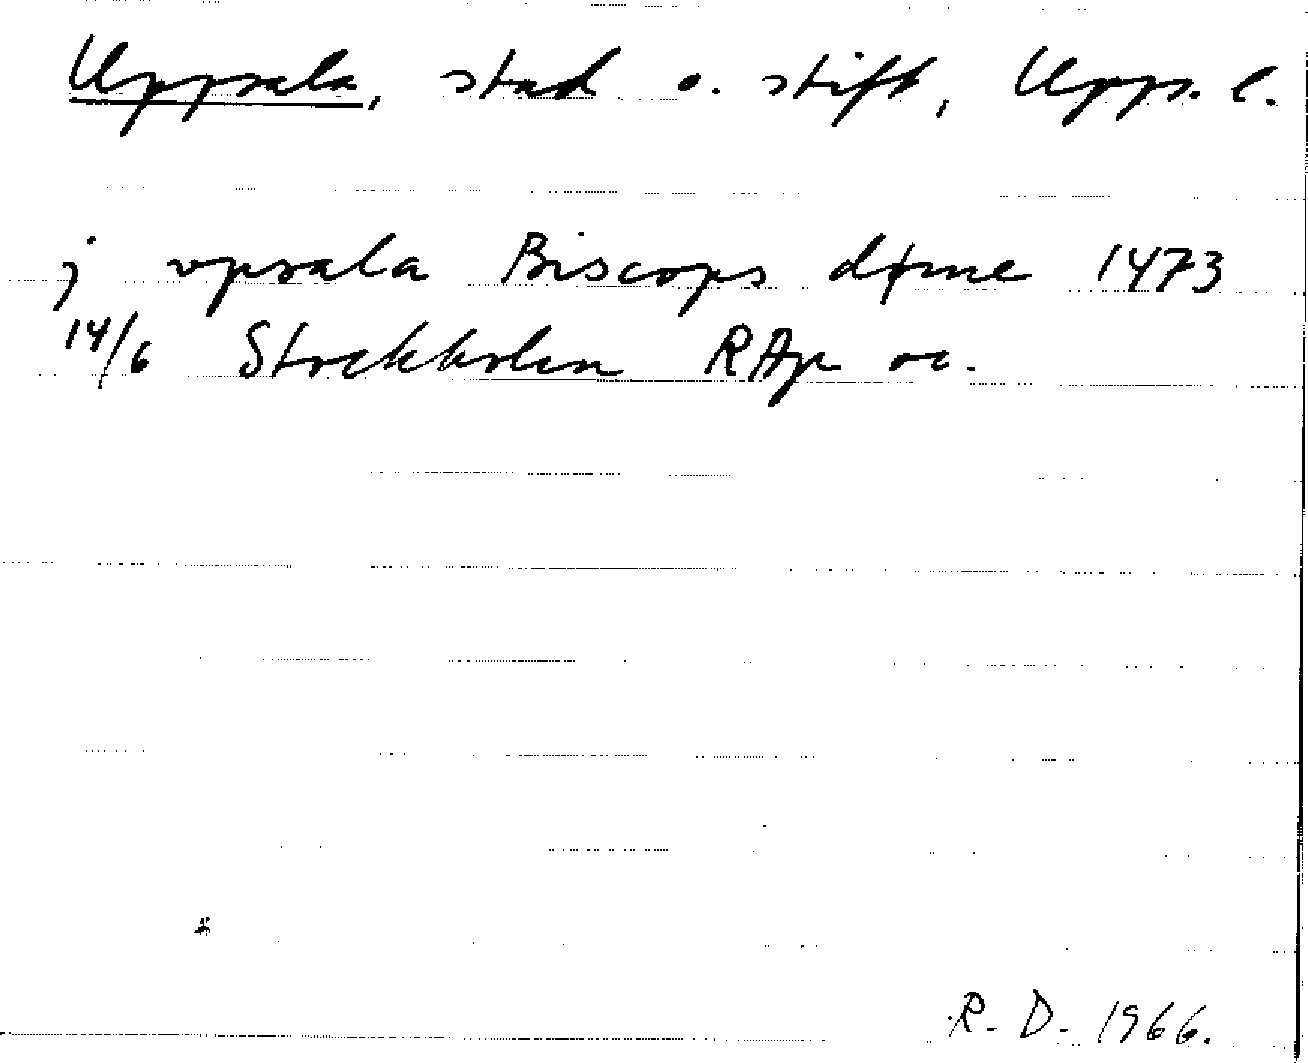 Uppsala, stad o. stift, Upps. l.
j vpsala Biscops døme 1473
14/6 Stockholm RAp or.
R. D. 1966.